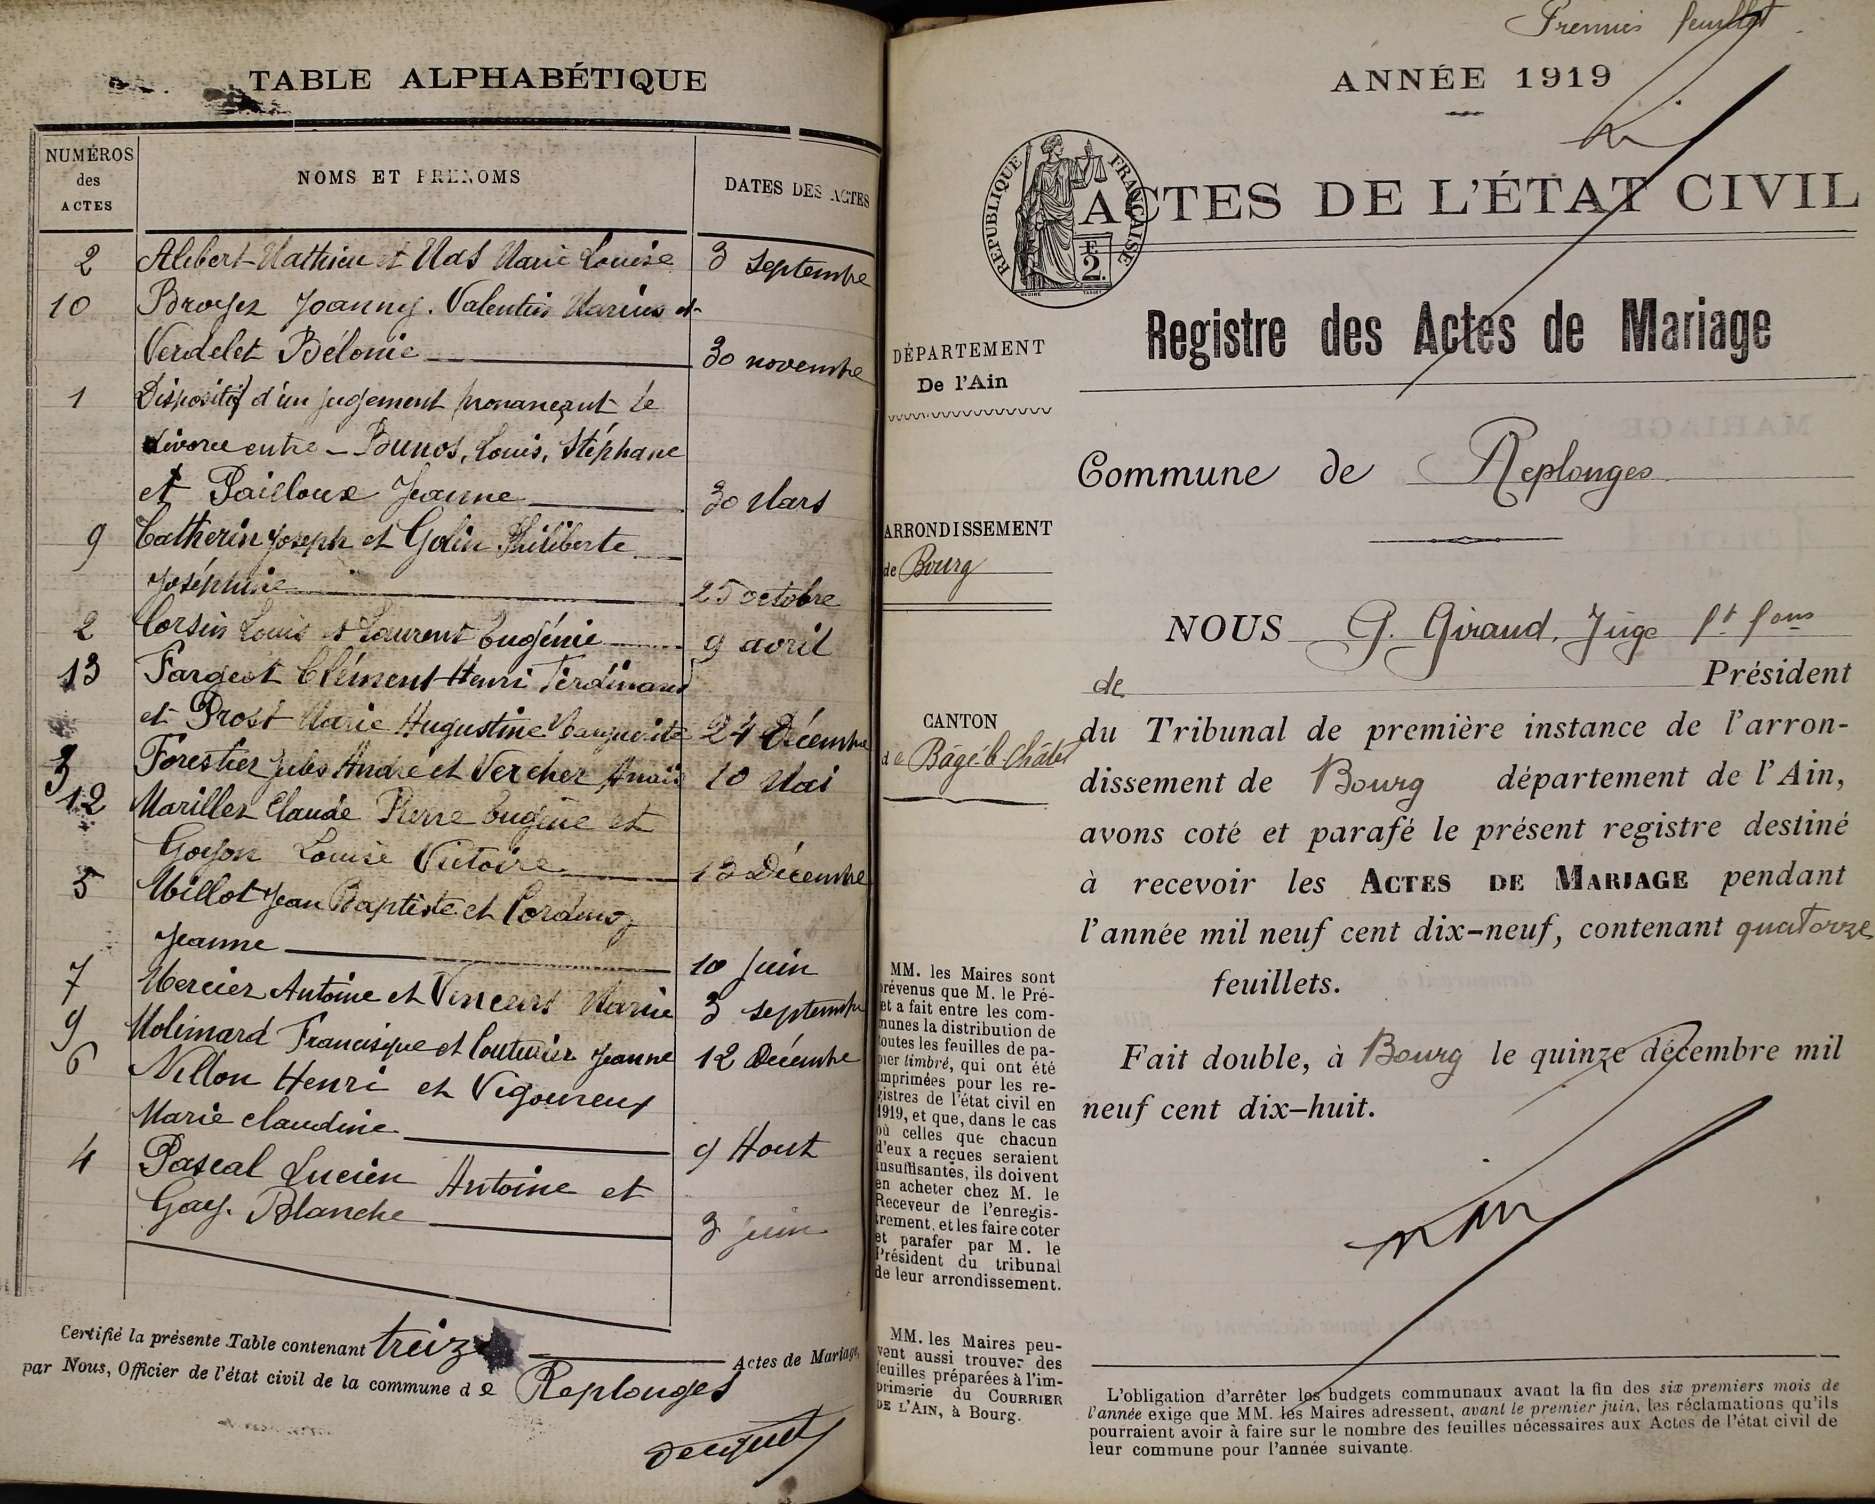 TABLE ALPHABÉTIQUE
NUMÉROS des ACTES
NOMS ET PRENOMS
DATES DES ACTES
2 Alibert Mathieu et Mas Marie Louise 3 septembre
10 Broyer Joanny Valentin Marius et
Verdelet Bélonie 30 novembre
1 Dispositif d'un jugement prononçant le
divorce entre - Bunos, Louis, Stéphane
et Pailloux Jeanne 30 Mars
9 Catherin Joseph et Golin Philiberte
Joséphine 25 octobre
2 Corsin Louis et Laurent Eugénie 9 avril
13 Fargeot Clément Henri Ferdinand
et Prost Marie Augustine Marguerite 24 Décembre
3 Forestier Jules André et Vercher Anaïs 10 Mai
12 Mariller Claude Pierre Eugène et
Goyon Louise Victoire 13 Décembre
5 Millot Jean Baptiste et
Jeanne 10 Juin
7 Mercier Antoine et Vincent Marie 3 septembre
9 Molimard Francisque et Couturier Jeanne 12 Décembre
6 Nillon Henri et Vigoureux
Marie Claudine 9 Aout
4 Pascal Lucien Antoine et
Gay Blanche 3 juin
Certifié la présente Table contenant treize Actes de Mariage,
par Nous, Officier de l'état civil de la commune de Replonges
Premier feuillet
ANNÉE 1919
RÉPUBLIQUE FRANÇAISE
F.
2.
ACTES DE L'ÉTAT CIVIL
Registre des Actes de Mariage
DÉPARTEMENT
De l'Ain
Commune de Replonges
ARRONDISSEMENT
de Bourg
CANTON
de Bâgé-le-Châtel
NOUS G. Giraud, Juge
de Président
du Tribunal de première instance de l'arron-
dissement de Bourg département de l'Ain,
avons coté et parafé le présent registre destiné
à recevoir les ACTES DE MARIAGE pendant
l'année mil neuf cent dix-neuf, contenant quatorze
feuillets.
Fait double, à Bourg le quinze décembre mil
neuf cent dix-huit.
MM. les Maires sont
prévenus que M. le Pré-
fet a fait entre les com-
munes la distribution de
toutes les feuilles de pa-
pier timbré, qui ont été
imprimées pour les re-
gistres de l'état civil en
1919, et que, dans le cas
où celles que chacun
d'eux a reçues seraient
insuffisantes, ils doivent
en acheter chez M. le
Receveur de l'enregis-
trement, et les faire coter
et parafer par M. le
Président du tribunal
de leur arrondissement.
MM. les Maires peu-
vent aussi trouver des
feuilles préparées à l'im-
primerie du COURRIER
DE L'AIN, à Bourg.
L'obligation d'arrêter les budgets communaux avant la fin des six premiers mois de
l'année exige que MM. les Maires adressent, avant le premier juin, les réclamations qu'ils
pourraient avoir à faire sur le nombre des feuilles nécessaires aux Actes de l'état civil de
leur commune pour l'année suivante.